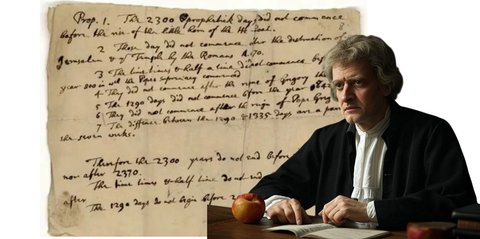 Prop. 1. The 2300 prophetick days did not commence
before the rise of the little horn of the He Goat.
2 Those day did not commence after the destruction of
Jerusalem & ye Temple by the Romans A. 70.
3 The time times & half a time did not commence before
year 800 in wch the Popes supremacy commenced
4 They did not commence after the reigne of Gregory the
5 The 1290 days did not commence before the year
6 They did not commence after the reigne of Pope Greg.
7 The diffence between the 1290 & 1335 days are a parts
the seven weeks.
Therefore the 2300 years do not end before
nor after 2370.
The time times & half time do not end
after
The 1290 days do not begin before